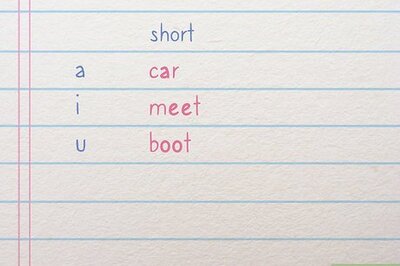 short
a car
i meet
u boot